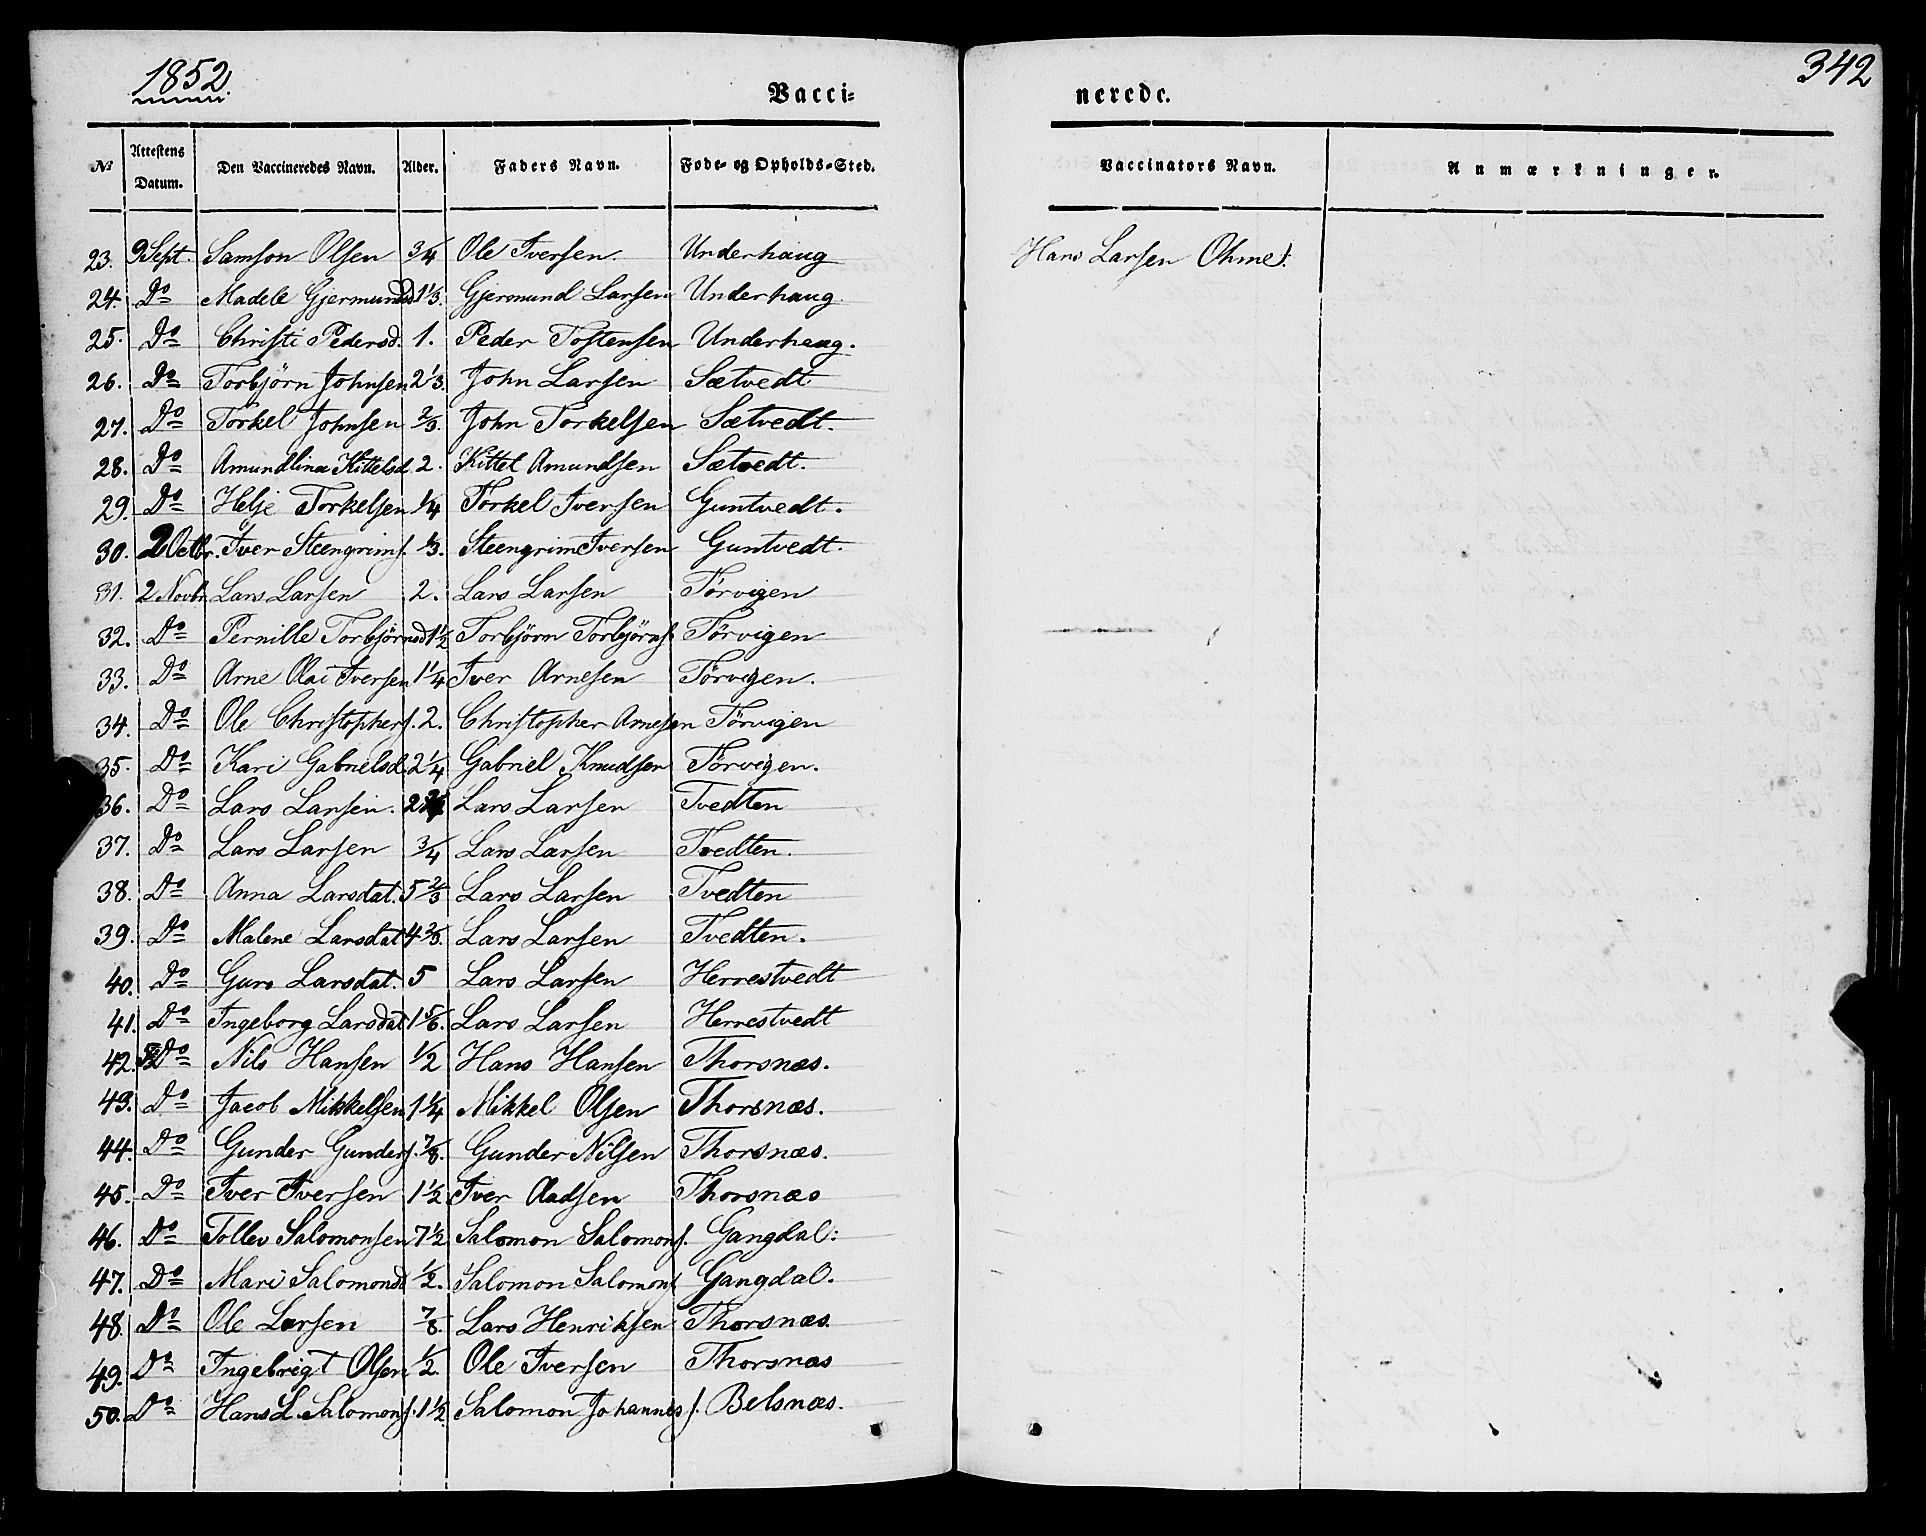 1852.
342
Vacci-
nerede.
No Attestens Datum. Den Vaccineredes Navn. Alder. Faders Navn. Føde- og Opholds-Sted. Vaccinators Navn. Anmærkninger.
23. 9 Sept. Samson Olsen 3/4 Ole Iversen Underhaug Hans Larsen Ohme
24. Do Madele Gjermundsd 1 1/3. Gjermund Larsen Underhaug
25. Do Christi Pedersd. 1. Peder Tostensen Underhaug.
26. Do Torbjörn Johnsen 2 1/3. John Larsen Sætvedt
27. Do Torkel Johnsen 2/3. John Torkelsen Sætvedt.
28. Do Amundlina Kittelsd. 2. Kittel Amundsen Sætvedt.
29. Do Helje Torkelsen 1/4 Torkel Iversen Guntvedt.
30. 2 Octbr. Iver Steengrims. 1/3. Steengrim Iversen Guntvedt.
31. 2 Novbr. Lars Larsen 2. Lars Larsen Törvigen
32. Do Pernille Torbjörnsd 1 1/2 Torbjörn Torbjörns. Törvigen
33. Do Arne Olai Iversen 1 1/4 Iver Arnesen Törvigen.
34. Do Ole Christophers. 2. Christopher Arnesen Törvigen
35. Do Kari Gabrielsd. 2 1/4 Gabriel Knudsen Törvigen.
36. Do Lars Larsen. 2 Lars Larsen Tvedten
37. Do Lars Larsen 3/4 Lars Larsen Tvedten.
38. Do Anna Larsdat. 5 2/3 Lars Larsen Tvedten
39. Do Malene Larsdat 4 2/3. Lars Larsen Tvedten.
40. Do Guro Larsdat. 5 Lars Larsen Herrestvedt
41. Do Ingeborg Larsdat 1 5/6. Lars Larsen Herrestvedt
42. Do Nils Hansen 1/2 Hans Hansen Thorsnæs.
43. Do Jacob Mikkelsen 1 1/4 Mikkel Olsen Thorsnæs.
44. Do Gunder Gunders. 7/8. Gunder Nilsen Thorsnæs.
45. Do Iver Iversen 1 1/2 Iver Aadsen Thorsnæs
46. Do Tollev Salomonsen 7 1/2 Salomon Salomons. Gangdal:
47. Do Mari Salomonsd 1/2. Salomon Salomons Gangdal.
48. Do Ole Larsen 7/8. Lars Henriksen Thorsnæs.
49. Do Ingebrigt Olsen 1/2. Ole Iversen Thorsnæs
50. Do Hans L. Salomons. 1 1/2. Salomon Johannes s. Belsnæs.